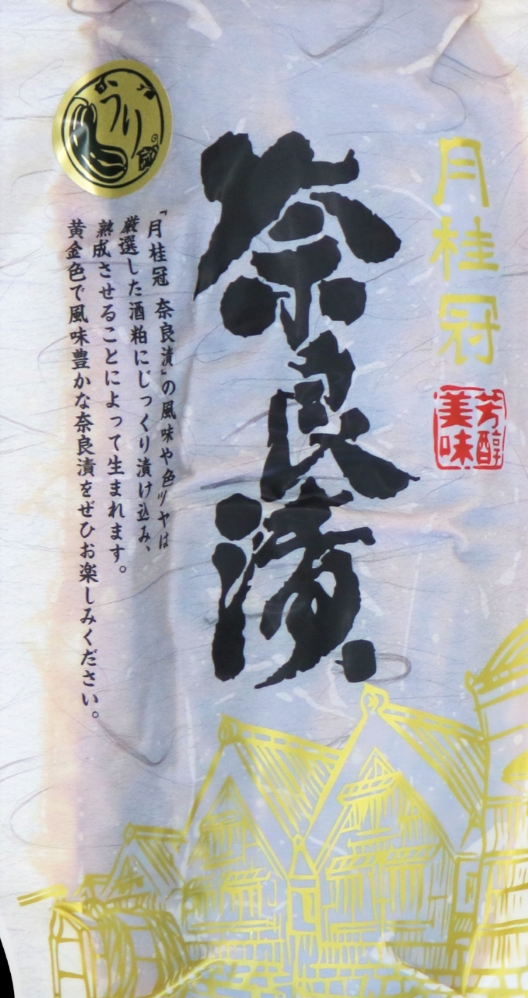 月桂冠
芳醇
美味
奈良漬
うり
「月桂冠 奈良漬」の風味や色ツヤは
厳選した酒粕にじっくり漬け込み、
熟成させることによって生まれます。
黄金色で風味豊かな奈良漬をぜひお楽しみください。